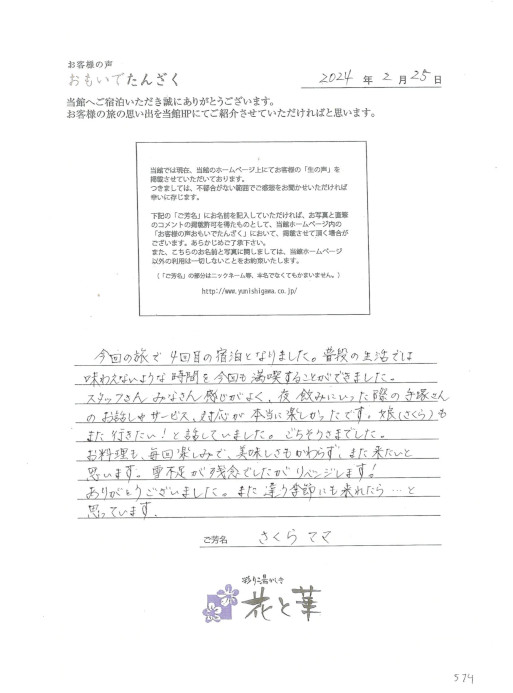 お客様の声
おもいでたんざく
2024 年 2 月 25 日
当館へご宿泊いただき誠にありがとうございます。
お客様の旅の思い出を当館HPにてご紹介させていただければと思います。
当館では現在、当館のホームページ上にてお客様の「生の声」を
掲載させていただいております。
つきましては、不都合がない範囲でご感想をお聞かせいただければ
幸いに存じます。
下記の「ご芳名」にお名前を記入していただければ、お写真と直筆
のコメントの掲載許可を得たものとして、当館ホームページ内の
「お客様の声おもいでたんざく」において、掲載させて頂く場合が
ございます。あらかじめご了承下さい。
また、こちらのお名前と写真に関しましては、当館ホームページ
以外の利用は一切しないことをお約束いたします。
(「ご芳名」の部分はニックネーム等、本名でなくてもかまいません。)
http://www.yunishigawa.co.jp/
今回の旅で4回目の宿泊となりました。普段の生活では
味わえないような時間を今回も満喫することができました。
スタッフさんみなさん感じがよく、夜飲みにいった際の手塚さん
のお話しやサービス、対応が本当に楽しかったです。娘(さくら)も
また行きたい!と話していました。ごちそうさまでした。
お料理も、毎回楽しみで、美味しさもかわらず、また来たいと
思います。雪不足が残念でしたがリベンジします!
ありがとうございました。また違う季節にも来れたら…と
思っています。
ご芳名 さくらママ
彩り湯かしき
花と華
574